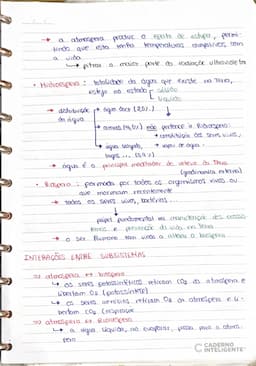 → a atmosfera produz o efeito de estufa, permi-
tindo que esta tenha temperaturas compatíveis com
a vida
↳ filtra a maior parte da radiação ultravioleta
• Hidrosfera: totalidade da água que existe na Terra,
esteja no estado sólido
líquido
→ distribuição água doce
da água
não pertence à hidrosfera:
constituição dos seres vivos,
água salgada, vapor de água.
→ água é o principal modelador do relevo da Terra
(geodinâmica externa)
• Biosfera: formada por todos os organismos vivos ou
que morreram recentemente
→ todos os seres vivos, bactérias...
papel fundamental na
e preservação da vida na Terra
→ o ser humano tem vindo a alterar a biosfera
INTERAÇÕES ENTRE SUBSISTEMAS
atmosfera ↔ biosfera
↳ os seres fotossintéticos retiram CO2 da atmosfera e
libertam O2 (fotossíntese)
↳ os seres retiram O2 da atmosfera e li-
bertam CO2 (respiração
atmosfera ↔ hidrosfera
↳ a água líquida, ao evaporar, passa para a atmos-
fera
CADERNO
INTELIGENTE